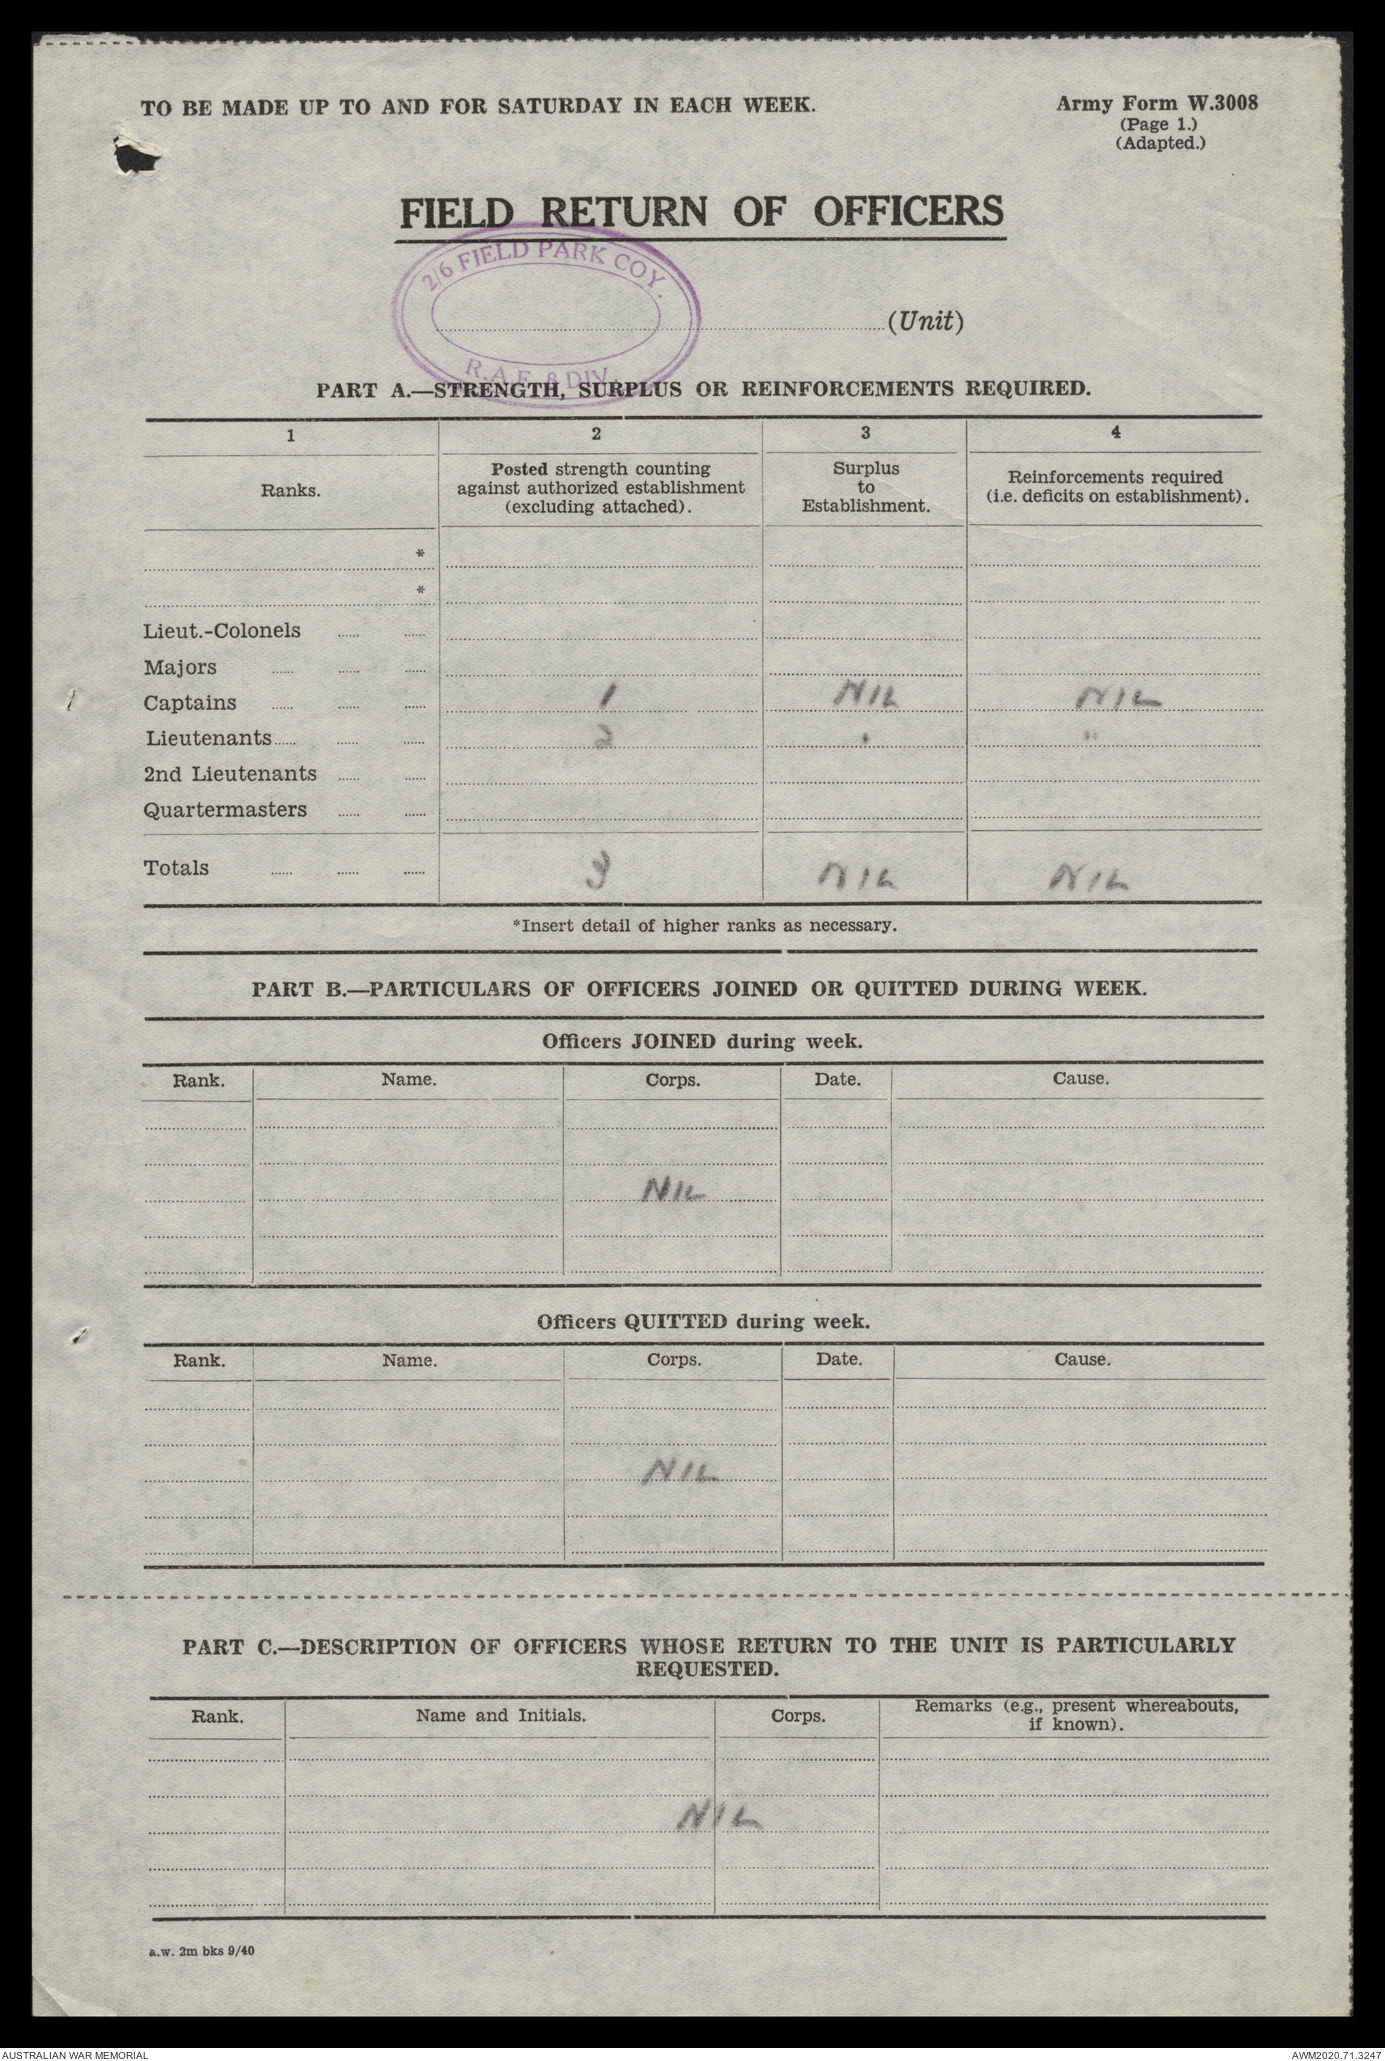 TO BE MADE UP TO AND FOR SATURDAY IN EACH WEEK.
Army Form W.3008
(Page 1.)
(Adapted.)
FIELD RETURN OF OFFICERS
2/6 FIELD PARK COY.
(Unit)
R.A.E. 8 DIV.
PART A.—STRENGTH, SURPLUS OR REINFORCEMENTS REQUIRED.
1 2 3 4
Ranks. Posted strength counting against authorized establishment (excluding attached). Surplus to Establishment. Reinforcements required (i.e. deficits on establishment).
*
*
Lieut.-Colonels
Majors
Captains 1 NIL NIL
Lieutenants 2 " "
2nd Lieutenants
Quartermasters
Totals 3 NIL NIL
*Insert detail of higher ranks as necessary.
PART B.—PARTICULARS OF OFFICERS JOINED OR QUITTED DURING WEEK.
Officers JOINED during week.
Rank. Name. Corps. Date. Cause.
NIL
Officers QUITTED during week.
Rank. Name. Corps. Date. Cause.
NIL
PART C.—DESCRIPTION OF OFFICERS WHOSE RETURN TO THE UNIT IS PARTICULARLY
REQUESTED.
Rank. Name and Initials. Corps. Remarks (e.g., present whereabouts, if known).
NIL
a.w. 2m bks 9/40
AUSTRALIAN WAR MEMORIAL
AWM2020.71.3247